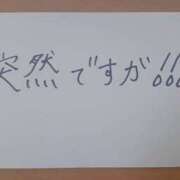 突然ですが!!!